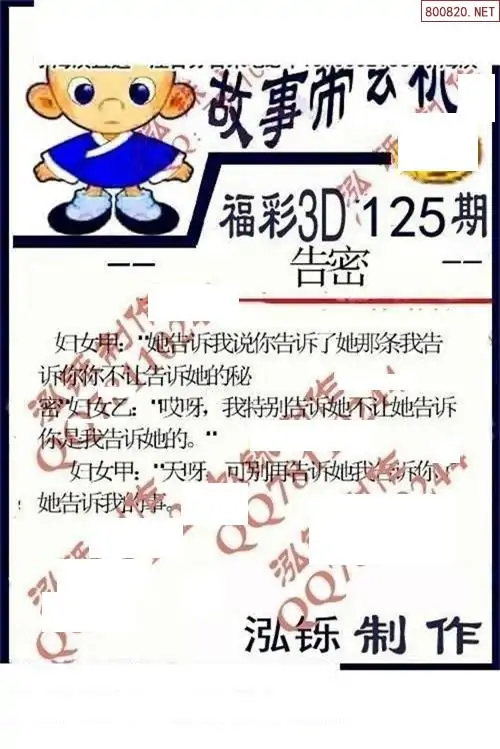 800820.NET
故事带玄机
福彩3D 125期
告密
-- --
妇女甲："她告诉我说你告诉了她那条我告
诉你你不让告诉她的秘
密"妇女乙："哎呀，我特别告诉她不让她告诉
你是我告诉她的。"
妇女甲："天呀，可别再告诉她我告诉你
她告诉我的事。
泓铄制作